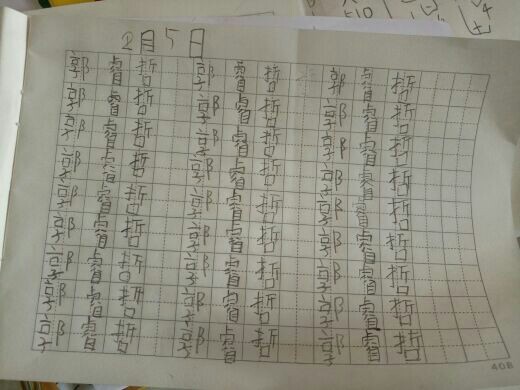 2月5日
郭睿哲 郭睿哲 郭睿哲
郭睿哲 郭睿哲 郭睿哲
郭睿哲 郭睿哲 郭睿哲
郭睿哲 郭睿哲 郭睿哲
郭睿哲 郭睿哲 郭睿哲
郭睿哲 郭睿哲 郭睿哲
郭睿哲 郭睿哲 郭睿哲
郭睿哲 郭睿哲 郭睿哲
郭睿哲 郭睿哲 郭睿哲